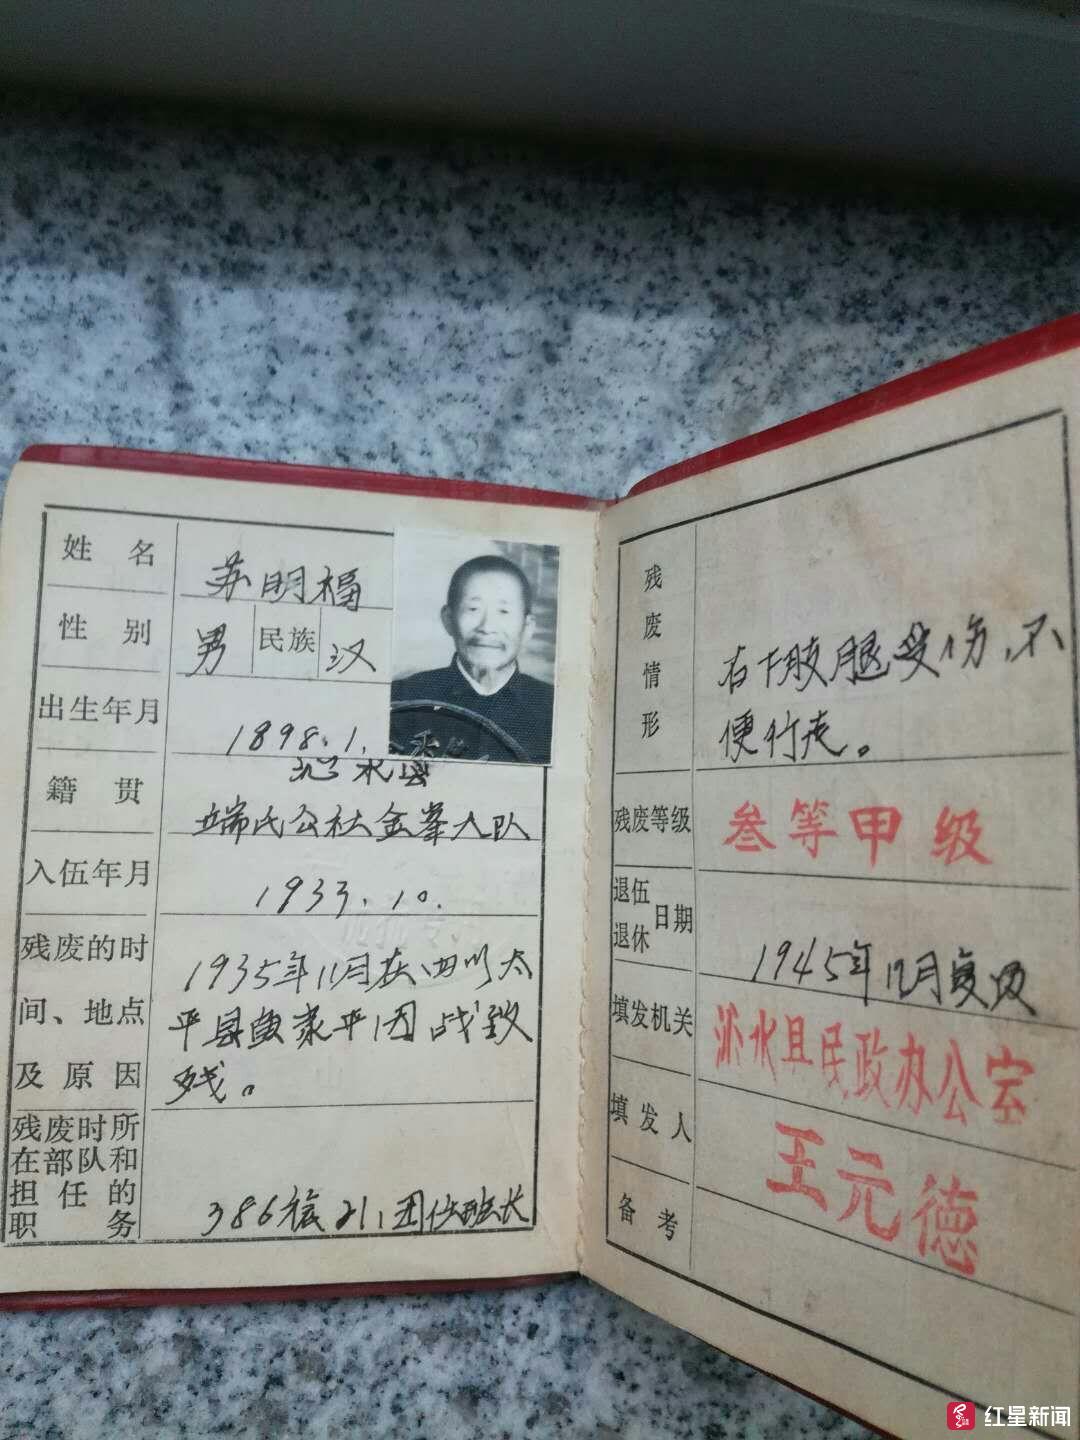 姓名 苏明福
性别 男 民族 汉
出生年月 1898.1.
籍贯 沁水县
端氏公社金峯大队
入伍年月 1933.10.
残废的时 1935年11月在四川太
间、地点 平县
及原因 残。
残废时所
在部队和
担任的
职务 386旅 21团任班长
残废情形 右下肢腿受伤,不
便行走。
残废等级 叁等甲级
退伍
退休 日期 1945年12月复员
填发机关 沁水县民政办公室
填发人 王元德
备考
红星新闻